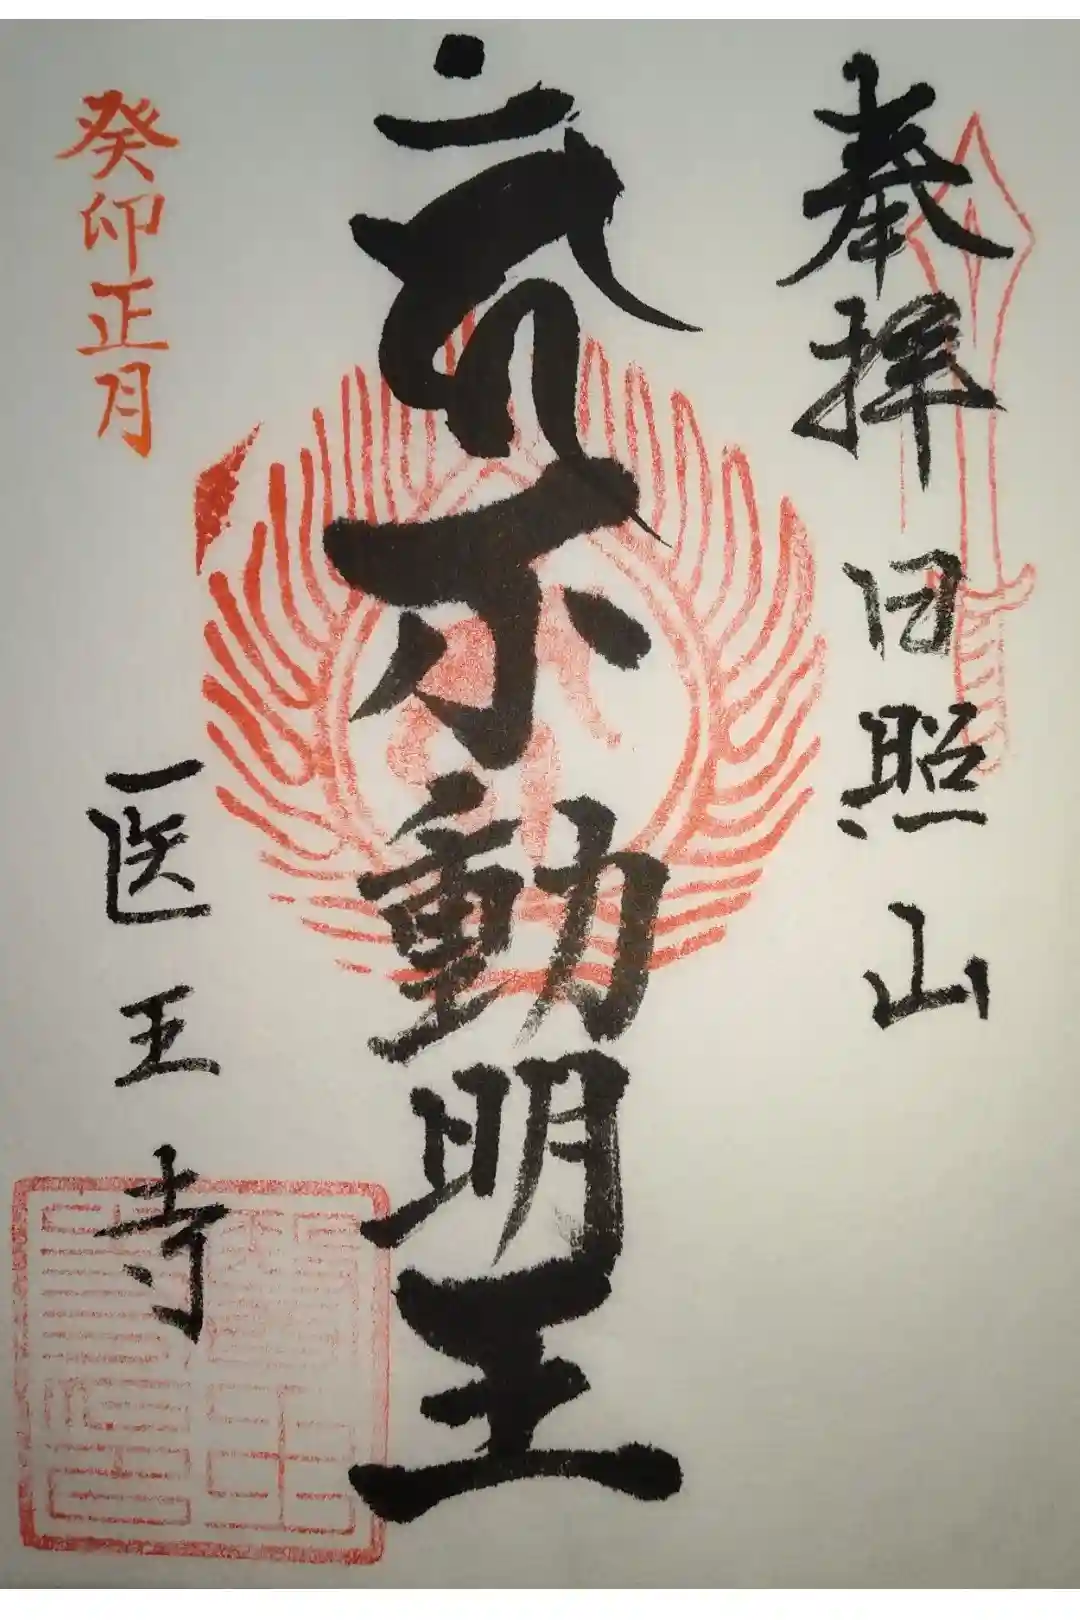 奉拝 日照山
不動明王
癸卯正月
医王寺